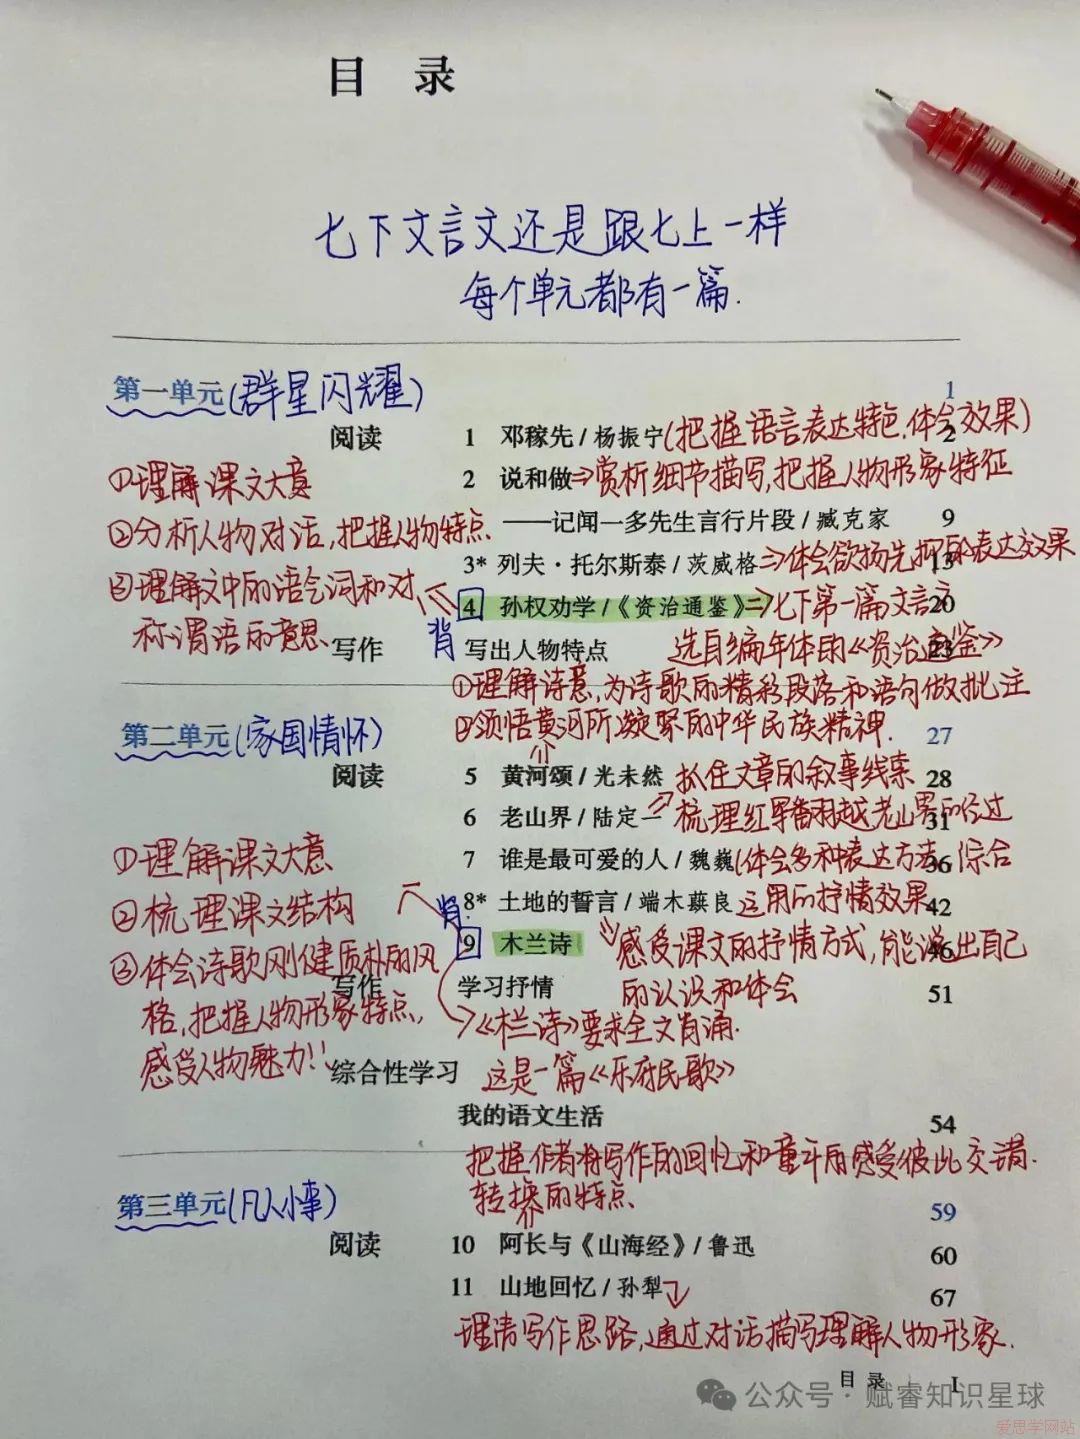 目 录
七下文言文还是跟七上一样
每个单元都有一篇.
第一单元(群星闪耀) 1
阅读 1 邓稼先 / 杨振宁(把握语言表达特色.体会效果) 2
①理解课文大意
2 说和做⇒赏析细节描写,把握人物形象特征
②分析人物对话,把握人物特点
——记闻一多先生言行片段 / 臧克家 9
3* 列夫·托尔斯泰 / 茨威格⇒体会欲扬先抑的表达效果 13
③理解文中的语气词和对
称谓语的意思
背 4 孙权劝学 /《资治通鉴》⇒七下第一篇文言文 20
选自编年体的《资治通鉴》
写作 写出人物特点 23
①理解诗意,为诗歌的精彩段落和语句做批注
②领悟黄河所凝聚的中华民族精神.
第二单元(家国情怀) 27
阅读 5 黄河颂 / 光未然 28
抓住文章的叙事线索
6 老山界 / 陆定一 31
梳理红军翻越老山界的经过
7 谁是最可爱的人 / 魏巍(体会多种表达方法,综合 36
运用的抒情效果
①理解课文大意
②梳理课文结构
8* 土地的誓言 / 端木蕻良 42
背 9 木兰诗 46
感受课文的抒情方式,能说出自己
的认识和体会
③体会诗歌刚健质朴的风
格,把握人物形象特点,
感受人物魅力!!
写作 学习抒情 51
《栏诗》要求全文背诵.
这是一篇《乐府民歌》
综合性学习
我的语文生活 54
把握作者将写作的回忆和童年的感受彼此交错.
转换的特点
第三单元(凡人小事) 59
阅读 10 阿长与《山海经》/ 鲁迅 60
11 山地回忆 / 孙犁 67
理清写作思路,通过对话描写理解人物形象.
目 录 I
公众号 · 赋睿知识星球
爱思学网站